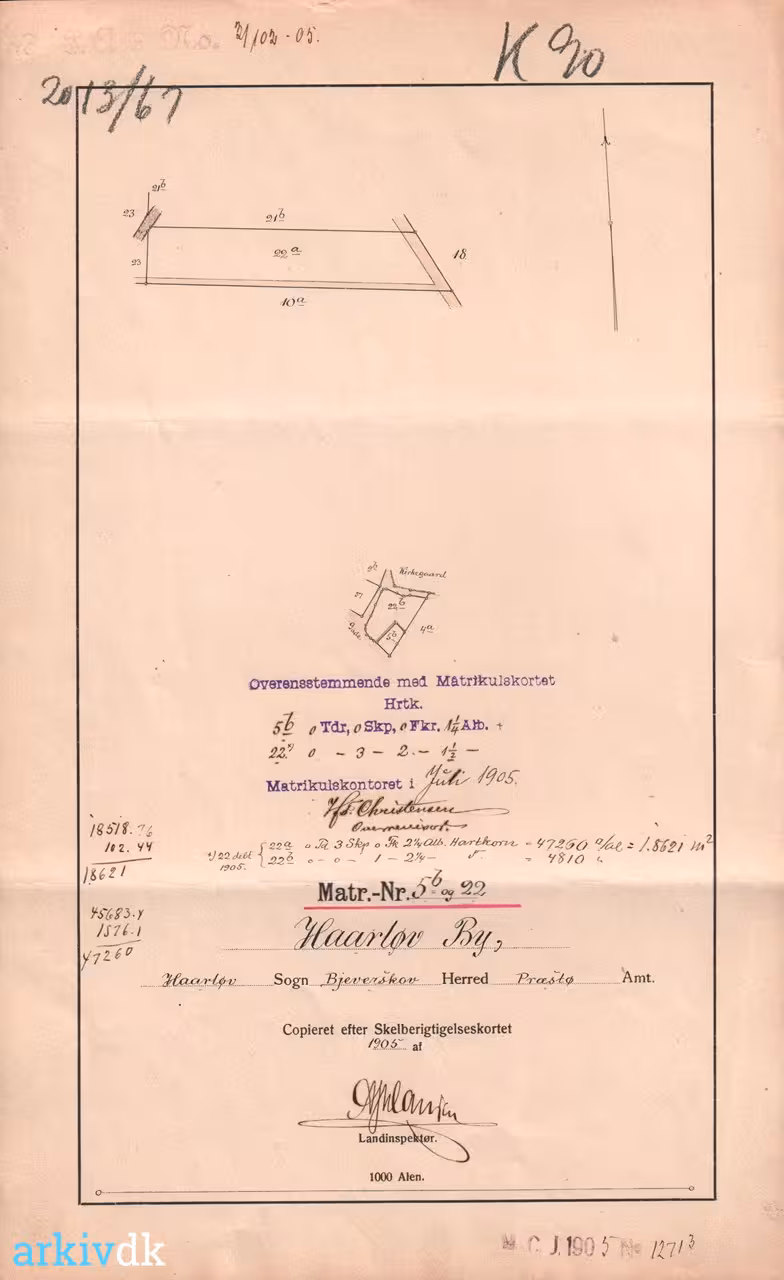 2/102-05.
K 90
2013/67
21b
23
21b
22a
18
23
10a
Kirkegaard
57
22b
5b
4a
Overensstemmende med Matrikulskortet
Hrtk.
5b 0 Tdr, 0 Skp, 0 Fkr. 1¼ Alb. +
22 x) 0 - 3 - 2 - 1½ -
Matrikulskontoret i Juli 1905.
Christensen
18518.76
102.44
18621
x) 22 delt 1905. { 22a 0 Td 3 Skp 0 Fk 2¼ Alb. Hartkorn = 47260 □ al = 1.8621 m²
22b 0 - 0 - 1 - 2¼ - = 4810
Matr.-Nr. 5b og 22
45683.4
1576.1
47260
Haarløv By,
Haarløv Sogn Bjeverskov Herred Præstø Amt.
Copieret efter Skelberigtigelseskortet
1905 af
Landinspektør.
1000 Alen.
M. C. J. 1905 No 12713
arkivdk